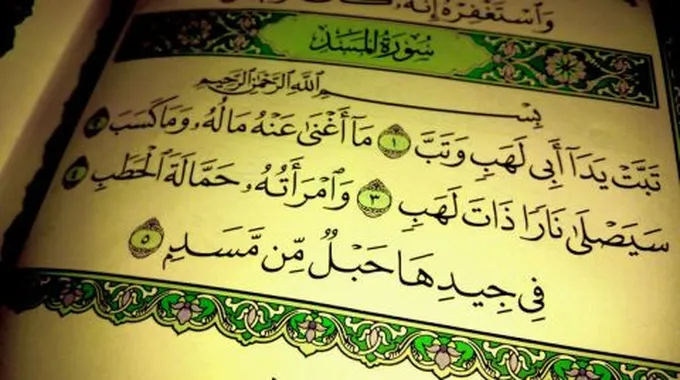 وَٱسْتَغْفِرْهُ إِنَّهُۥ كَانَ
سُورَةُ المَسَدِ
بِسْمِ ٱللَّهِ ٱلرَّحْمَٰنِ ٱلرَّحِيمِ
تَبَّتْ يَدَآ أَبِى لَهَبٍ وَتَبَّ ١ مَآ أَغْنَىٰ عَنْهُ مَالُهُۥ وَمَا كَسَبَ ٢
سَيَصْلَىٰ نَارًا ذَاتَ لَهَبٍ ٣ وَٱمْرَأَتُهُۥ حَمَّالَةَ ٱلْحَطَبِ ٤
فِى جِيدِهَا حَبْلٌ مِّن مَّسَدٍۭ ٥